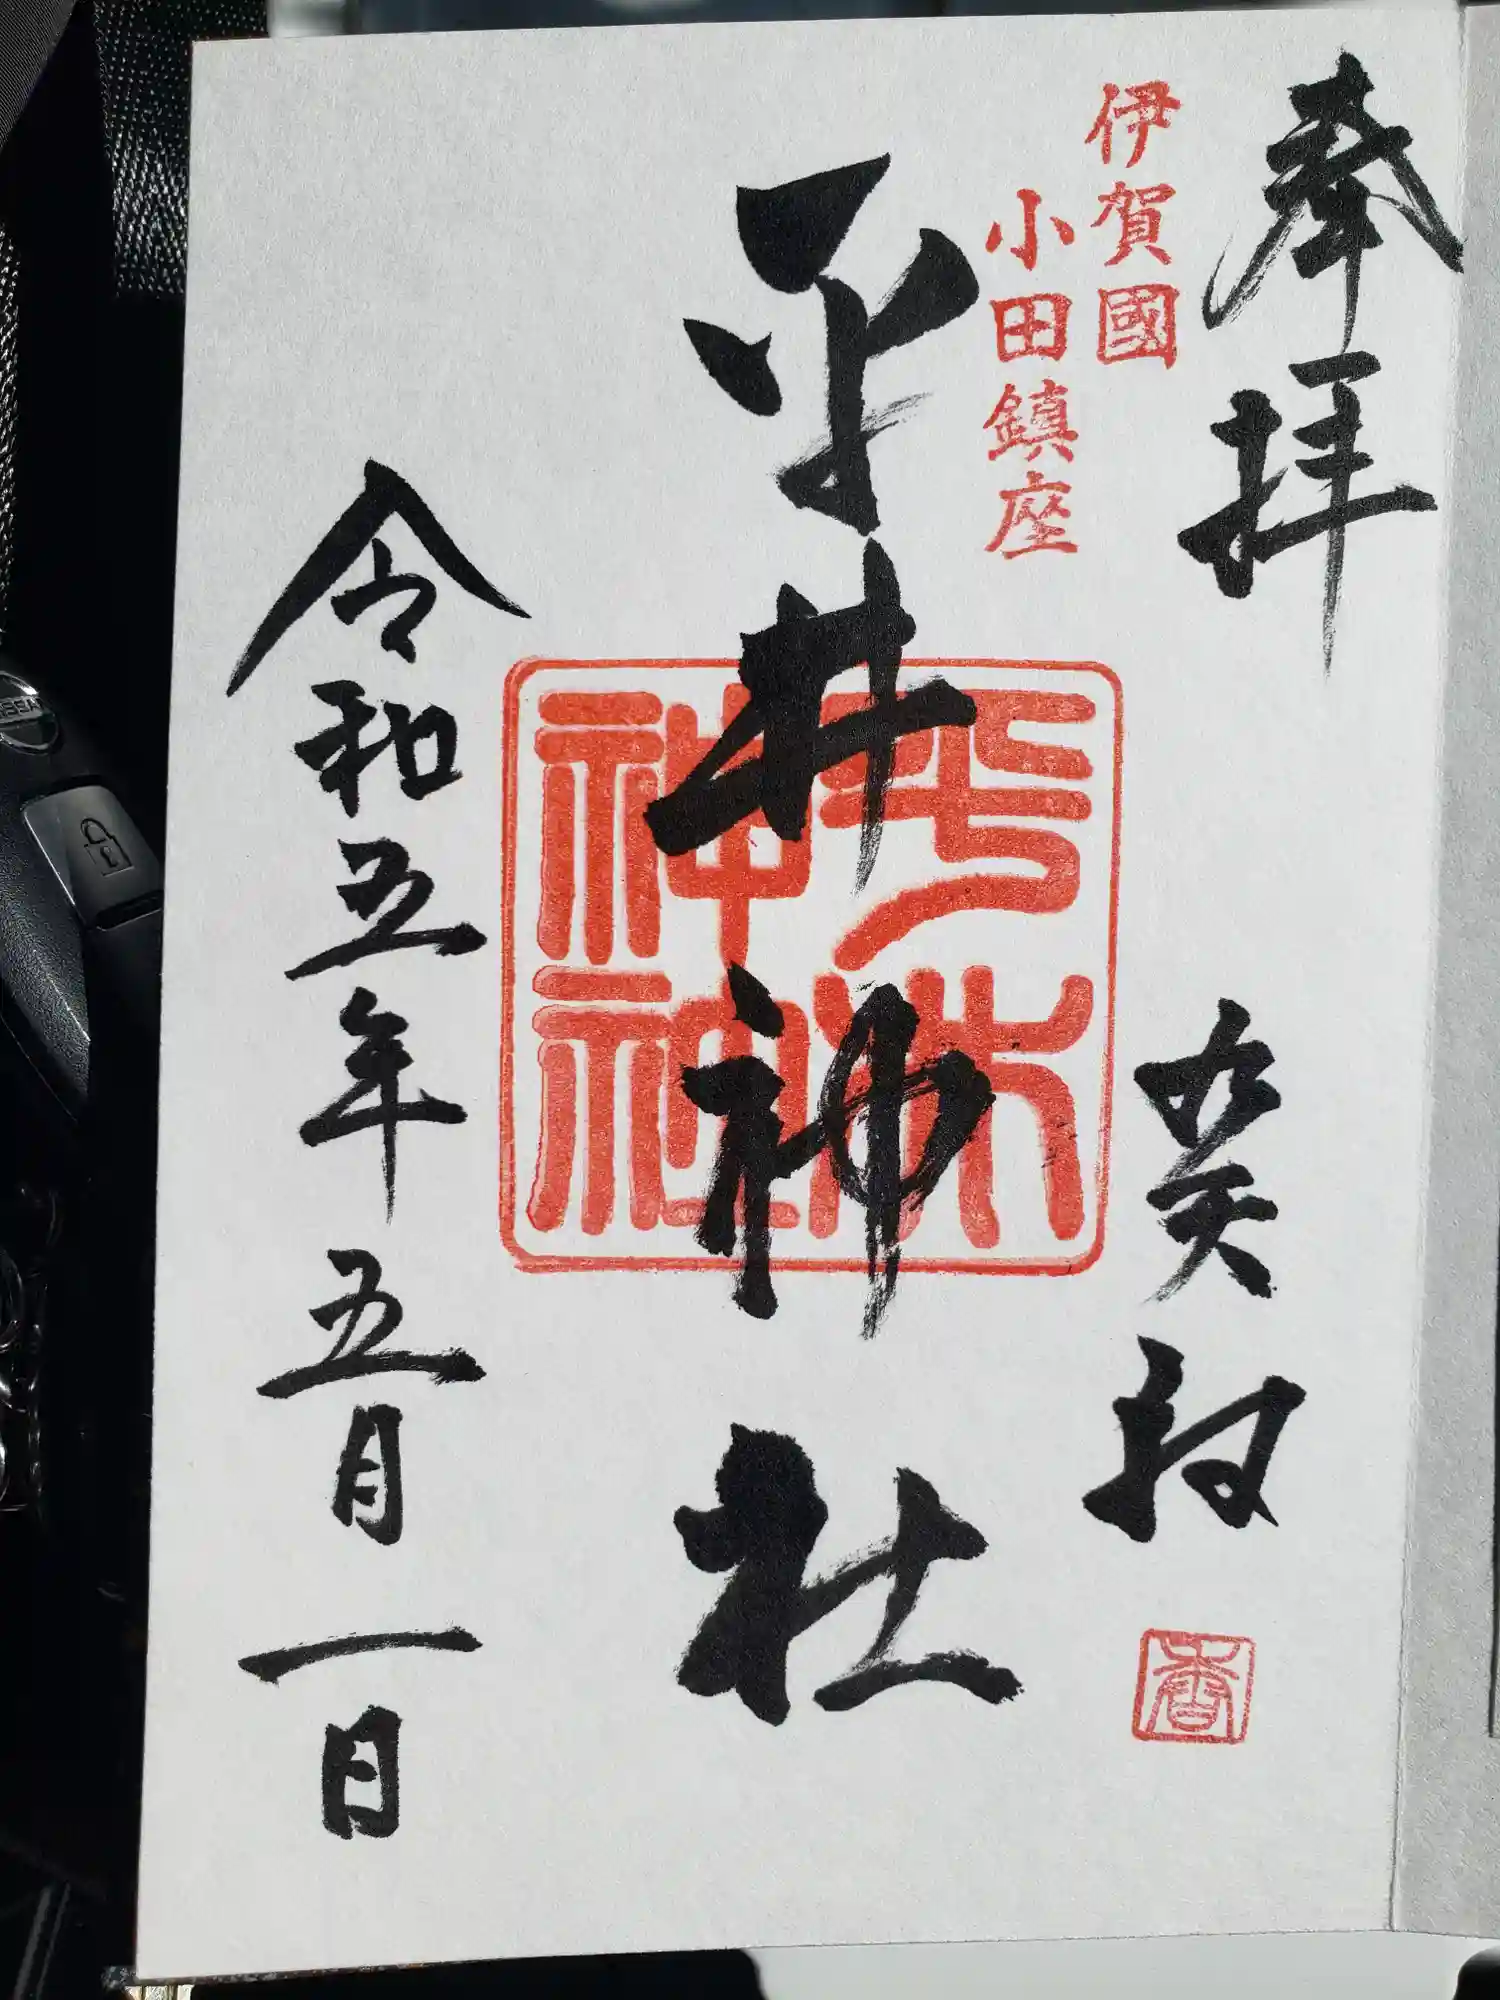 奉拝
癸卯
香
伊賀國
小田鎮座
平井神社
平井神社
令和五年五月一日